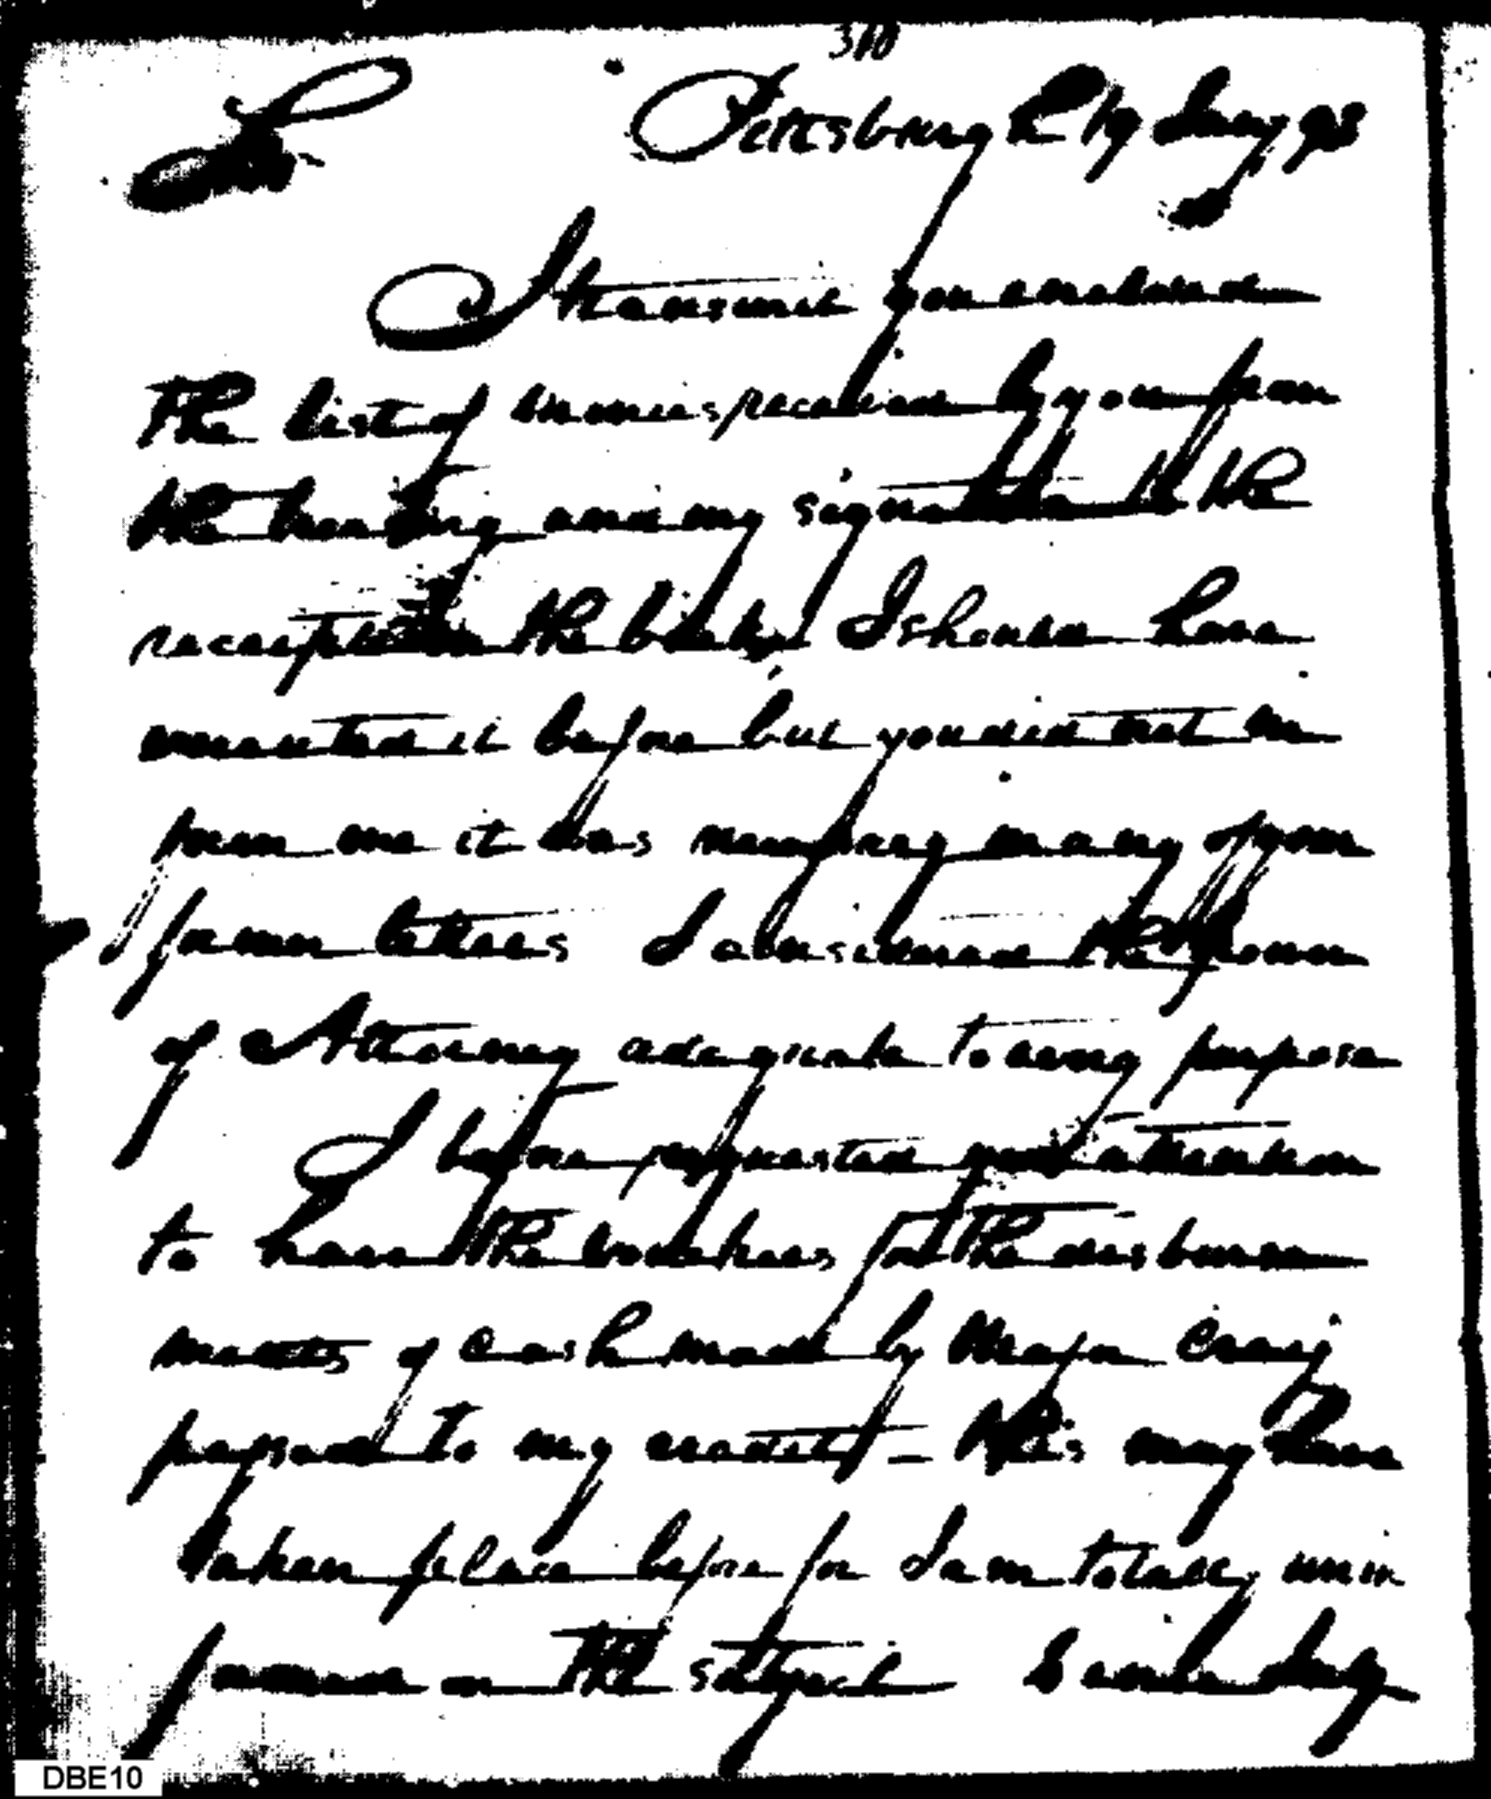 310
Sir
Pittsburgh 19 Jany 93
I transmit you enclosed
the list of monies received by you from
the treasury and my signature to the
receipts in the books, I should have
executed it before but you did not in
form me it was necessary in any of your
former letters I considered the power
of Attorney adequate to every purpose
I before requested your attention
to have the vouchers for the disburse
ments of cash made by Major Craig
passed to my credit – this may have
taken place before for I am totally unin
formed on the subject Since July
DBE10